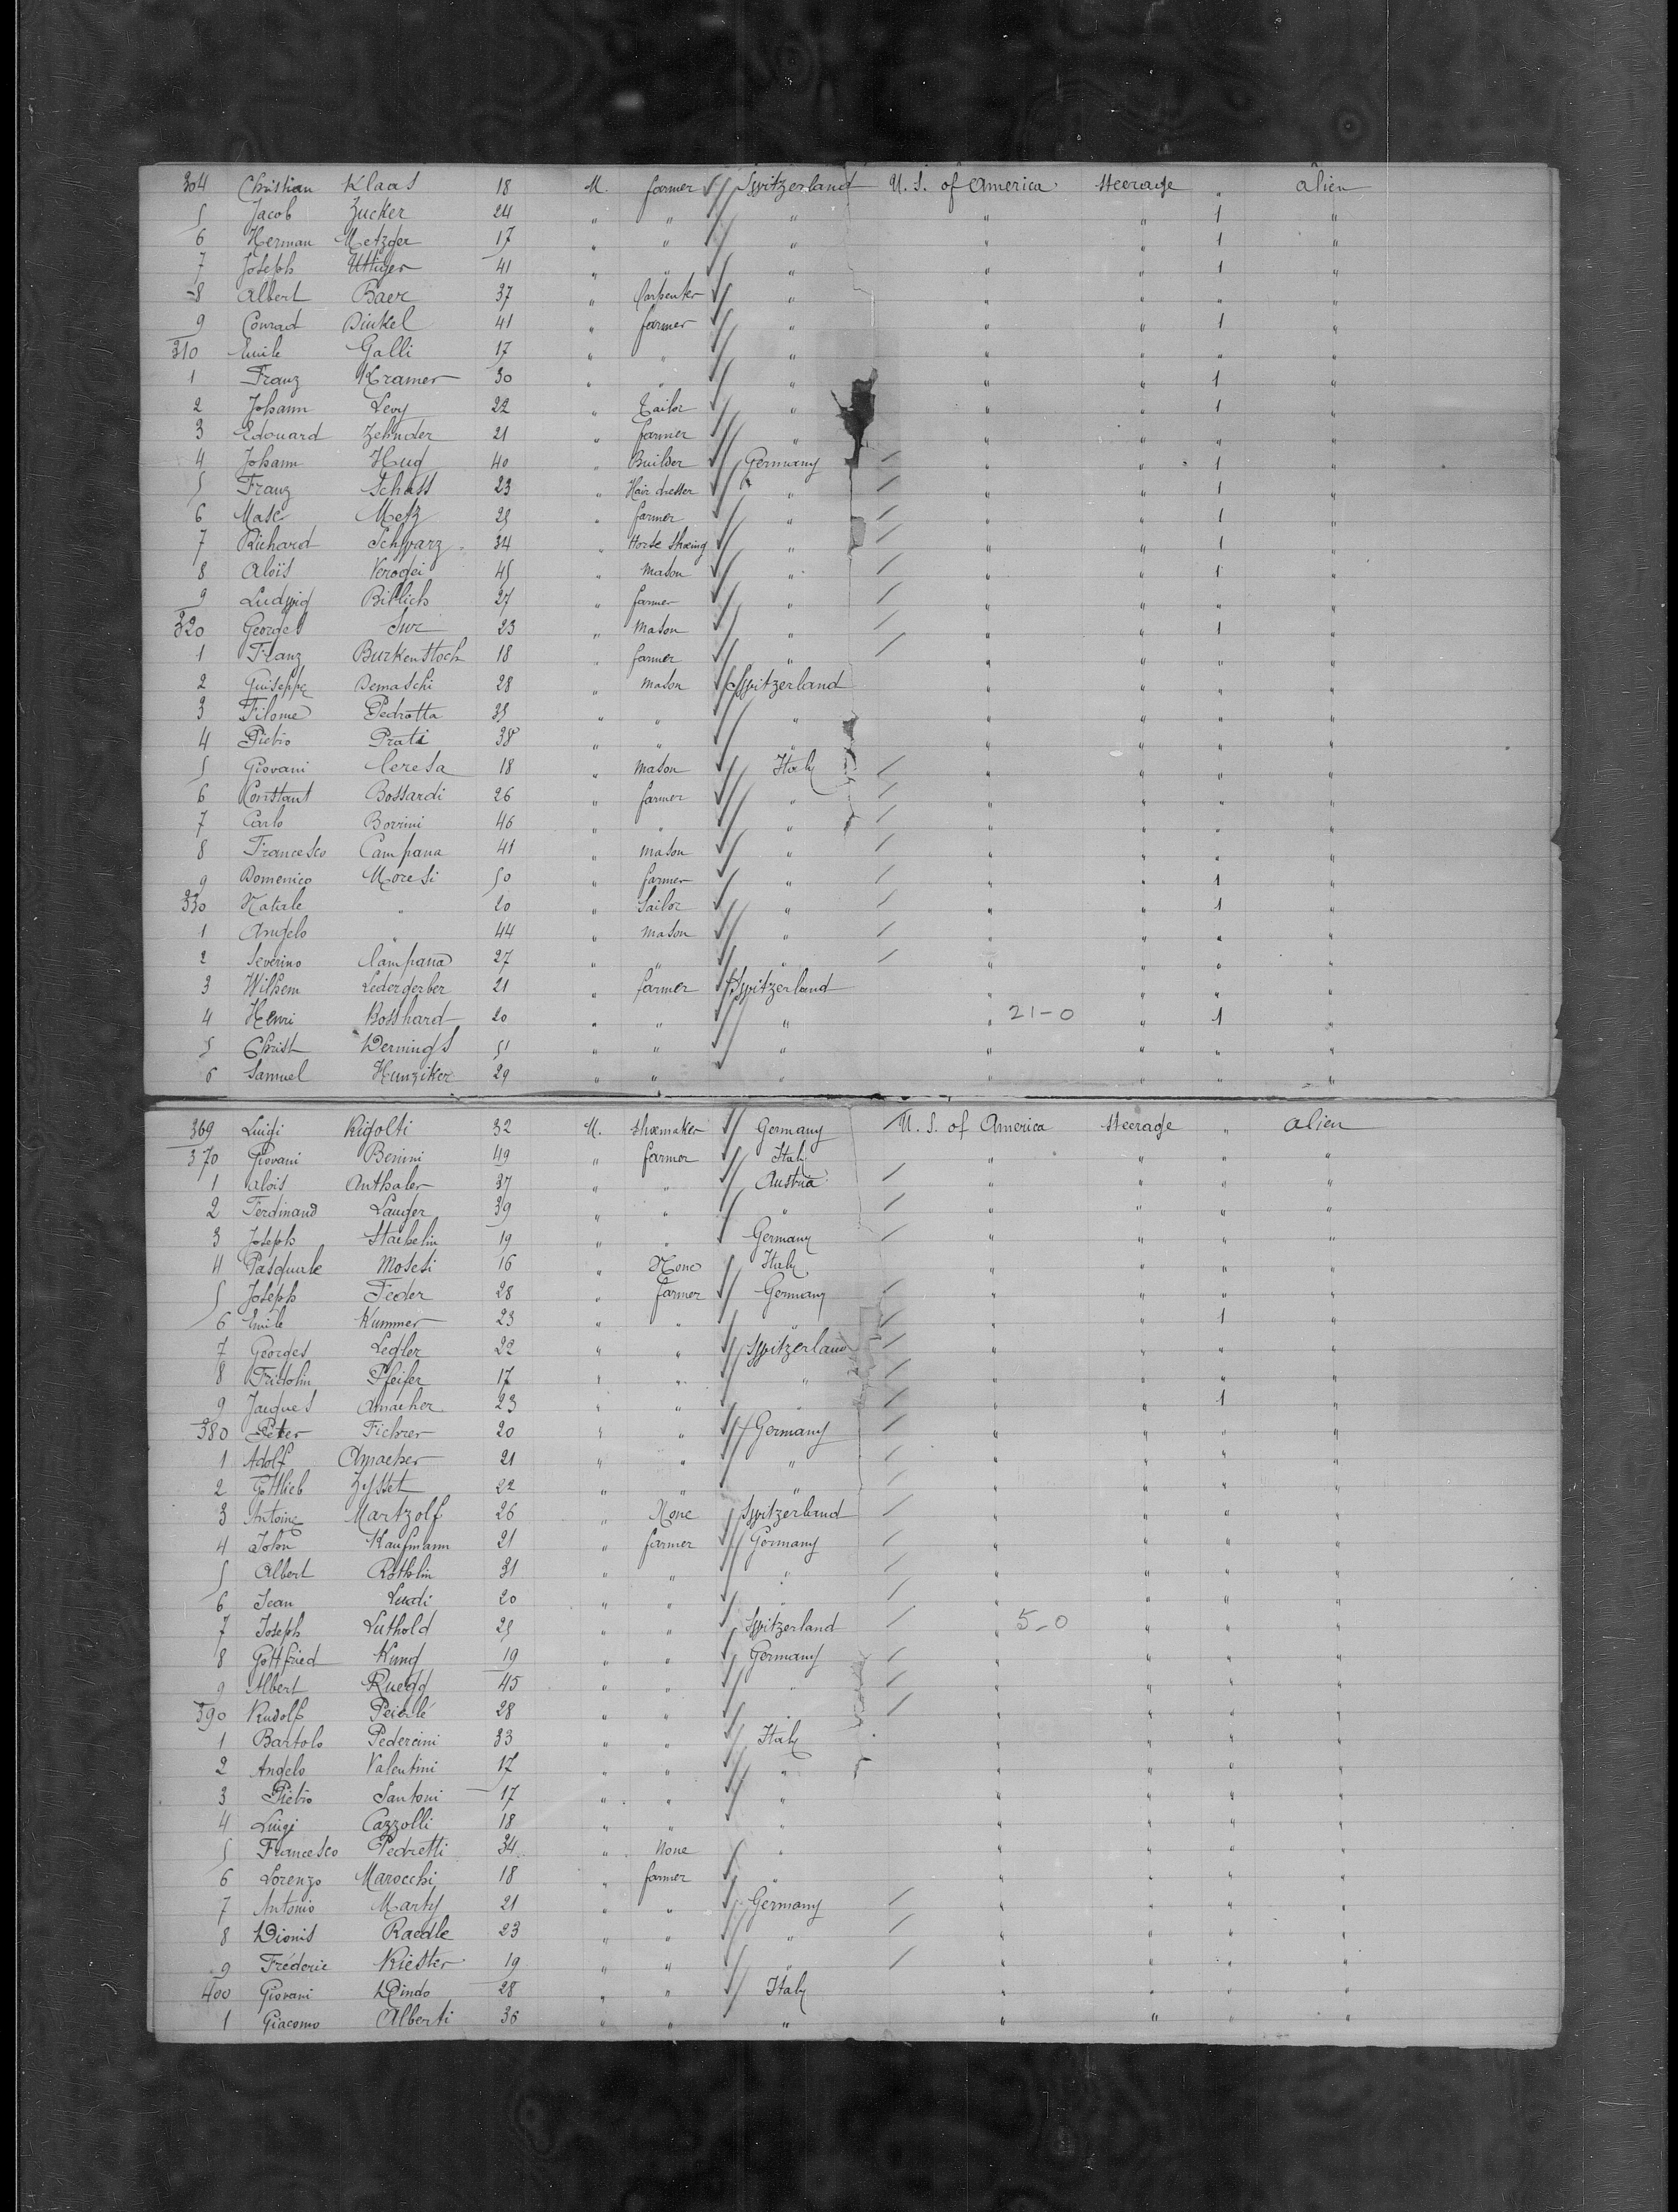 304 Christian Klaas 18 M. farmer Switzerland U. S. of America Steerage " alien
5 Jacob Zucker 24 " " " " " 1 "
6 Herman Metzger 17 " " " " " 1 "
7 Joseph Uttiger 41 " " " " " 1 "
8 Albert Baer 37 " Carpenter " " " " "
9 Conrad Dinkel 41 " farmer " " " 1 "
310 Emile Galli 17 " " " " " " "
1 Franz Kramer 30 " " " " " 1 "
2 Johann Levy 22 " Tailor " " " 1 "
3 Edouard Zehnder 21 " farmer " " " " "
4 Johann Hug 40 " Builder Germany " " 1 "
5 Franz Schass 23 " Hair dresser " " " 1 "
6 Metz " farmer " " " 1 "
7 Richard Schwarz 34 " Horse Shoeing " " " 1 "
8 Aloïs 45 " Mason " " " 1 "
9 Ludwig Billich 27 " farmer " " " " "
320 Georges Sur 23 " Mason " " " 1 "
1 Franz Burkenstock 18 " farmer " " " " "
2 Guiseppe Demaschi 28 " Mason Switzerland " " " "
3 Filome Pedrotta 35 " " " " " " "
4 Pietro Prati 38 " " " " " " "
5 Giovani Ceresa 18 " Mason Italy " " " "
6 Constant Bossardi 26 " farmer " " " " "
7 Carlo Bovini 46 " " " " " " "
8 Francesco Campana 41 " Mason " " " " "
9 Domenico Moresi 50 " farmer " " " 1 "
330 Natale " 20 " Sailor " " " 1 "
1 Angelo " 44 " Mason " " " " "
2 Severino Campana 27 " " " " " " "
3 Wilhem Ledergerber 21 " farmer Switzerland " " " "
4 Henri Bosshard 20 " " " " 21-0 " 1 "
5 Christ Wernings 51 " " " " " " "
6 Samuel Hunziker 29 " " " " " " "
369 Luigi Rigolti 32 M. Shoemaker Germany U. S. of America Steerage " alien
370 Giovani Benini 49 " farmer Italy " " " "
1 Alois Anthaler 37 " " Austria " " " "
2 Ferdinand Lauger 39 " " " " " " "
3 Joseph Staehelin 19 " " Germany " " " "
4 Pasquale Mosesi 16 " None Italy " " " "
5 Joseph Feder 28 " farmer Germany " " " "
6 Emile Kummer 23 " " " " " 1 "
7 Georges Legler 22 " " Switzerland " " " "
8 Fridolin Pfeifer 17 " " " " " " "
9 Jacques Amacher 23 " " " " " 1 "
380 Peter Fichrer 20 " " Germany " " " "
1 Adolf Amacher 21 " " " " " " "
2 Gottlieb Zysset 22 " " " " " " "
3 Antoine Martzolf 26 " None Switzerland " " " "
4 John Kaufmann 21 " farmer Germany " " " "
5 Albert Röthlin 31 " " " " " " "
6 Jean Luedi 20 " " " " " " "
7 Joseph Luthold 25 " " Switzerland " 5-0 " " "
8 Gottfried Kung 19 " " Germany " " " "
9 Albert Ruegg 45 " " " " " " "
390 Rudolf Peierlé 28 " " " " " " "
1 Bartolo Pedercini 33 " " Italy " " " "
2 Angelo Valentini 17 " " " " " " "
3 Pietro Santoni 17 " " " " " " "
4 Luigi Cazzolli 18 " " " " " " "
5 Francesco Pedretti 34 " None " " " " "
6 Lorenzo Marocchi 18 " farmer " " " " "
7 Antonio Marty 21 " " Germany " " " "
8 Dionis Raedle 23 " " " " " " "
9 Fréderic Riester 19 " " " " " " "
400 Giovani Dindo 28 " " Italy " " " "
1 Giacomo Alberti 36 " " " " " " "